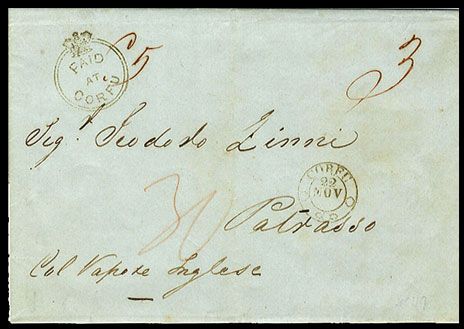 PAID
AT
CORFU
5
3
Sig.r Teododo Zinni
CORFU
22
NOV
30
Patrasso
Col Vapore Inglese